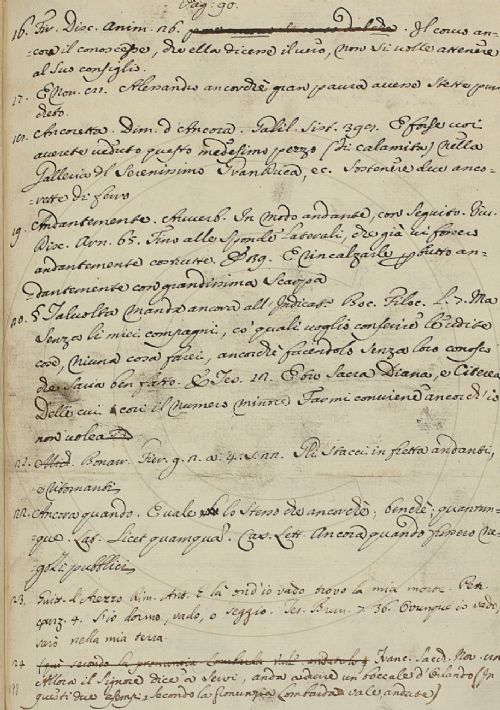 Pag: 90.
16. Fir. Disc. Anim. 26. Il corvo an-
cora il conoscesse, che ella dicesse il vero, non si volle attenere
al suo consiglio.
17. E Nov. Alessandro ancorchè gran paura avesse stette pur
cheto.
Ancoretta. Dim. d'Ancora. Galil. Sist. E forse voi
averete veduto questo medesimo pezzo (di calamita) nella
Galleria del Serenissimo Gran Duca, ec. sostenere due anco-
rette di ferro
19. Andantemente. Avverb. In modo andante, con seguito. Viv.
Disc. Arn. 65. Fino alle sponde laterali, che già vi fecero
andantemente costruite. E rincalzarle per tutto an-
dantemente con grandissima scarpa
20. § Talvolta manda ancora all' Indicat. Boc. Filoc. l. 7. Ma
senza li miei compagni, co' quali voglio conferire le udite
cose, niuna cosa farei, ancorchè facendolo senza loro conosco
che saria ben fatto. E Tes. O tu sacra Diana, e Citerea
Delle cui il numero minore Farmi conviene ancorch'io
non volea
Buonar. Fier. g. 2. a. 4. s. Gli stacci in fretta andanti,
e ritornanti
22. Ancora quando. E vale lo stesso che ancorchè; benchè; quantun-
que. Lat. Licet quamquam. Cas. Lett. Ancora quando fussero ne-
gozi pubblici
23. Guitt. d'Arezzo Rim. Ant. E là ond'io vado trovo la mia morte. Petr.
canz. 4. S'io dormo, vado, o seggio. Tes. Brun. 7. 36. Ovunque io vado,
sarò nella mia terra.
24. Franc. Sacch. Nov.
Allora il Signore dice a' servi, andà aidure un boccale d'Bilando (In
questi due esempi, secondo la pronunzia Lombarda vale, andate)